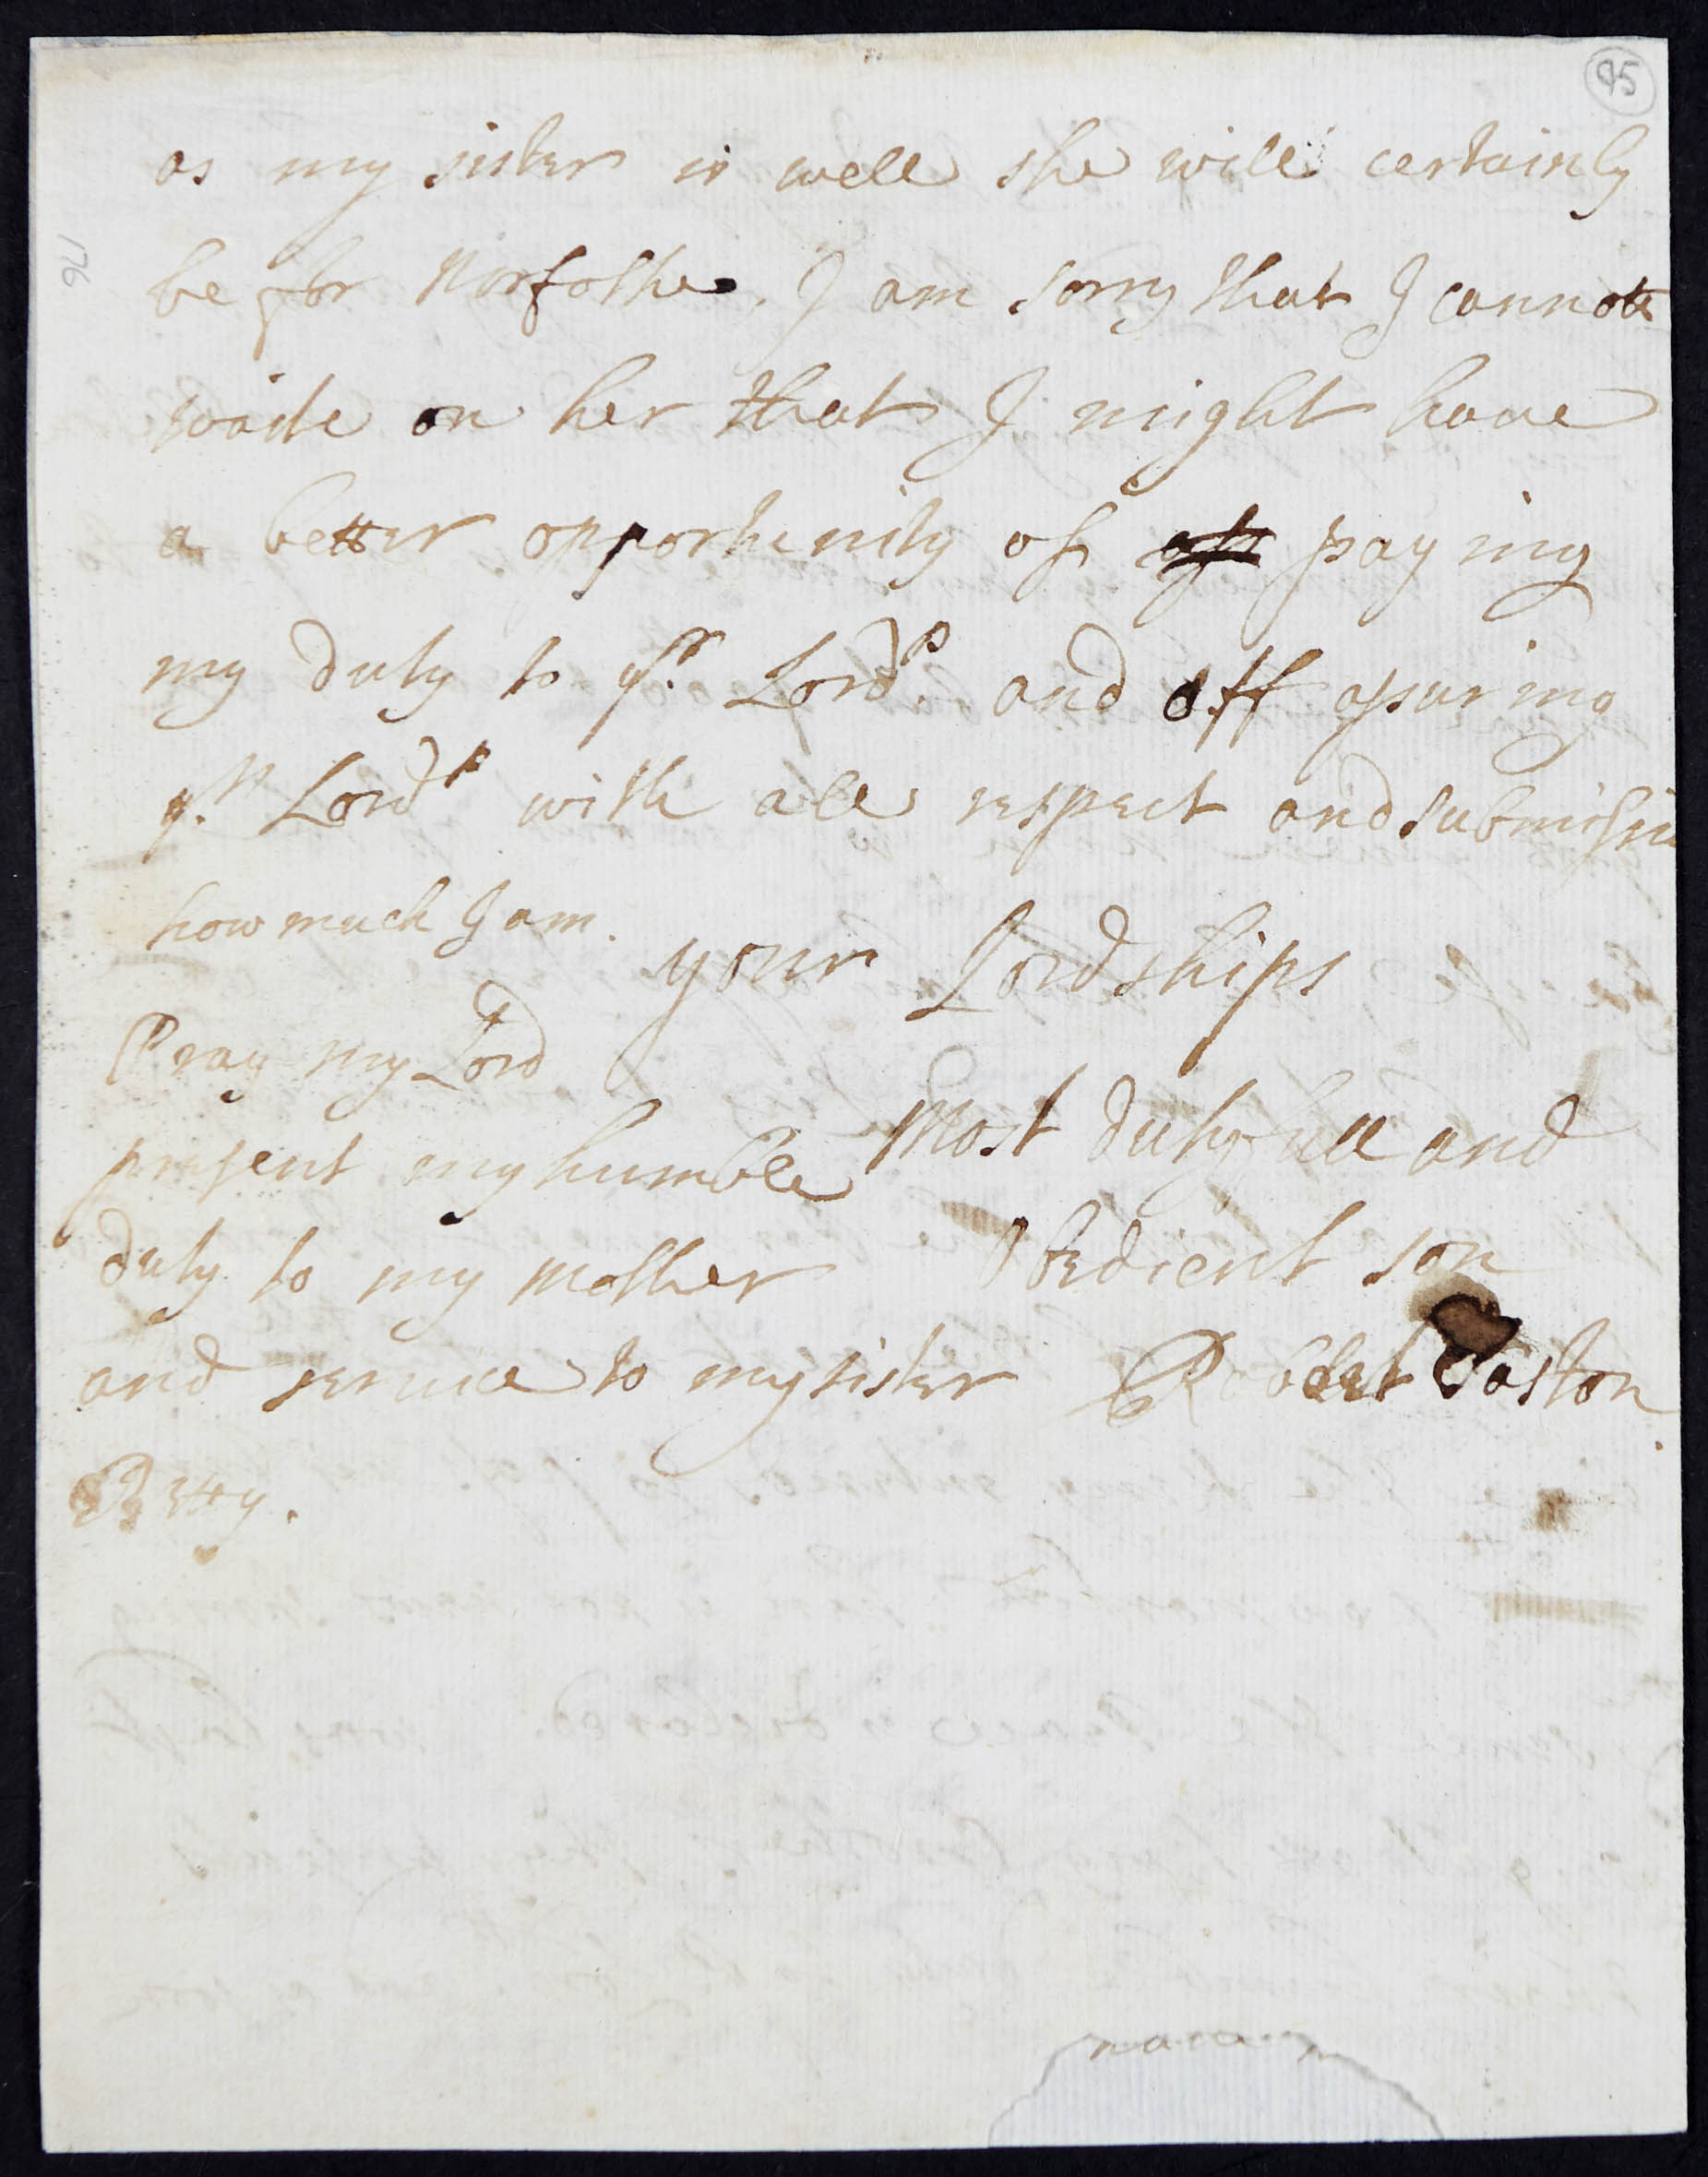 95
176
as my sister is well she will certainly
be for Norfolke. I am sorry that I cannott
waite on her that I might haue
a better opportunity of paying
my duty to yr. Lordp. and off assuring
yr. Lordp with all respect and submissi
how much I am.
your Lordships
Most dutyfull and
obedient son
Robert Paston.
Pray my Lord
present my humble
duty to my mother
and seruice to my sister
Betty.